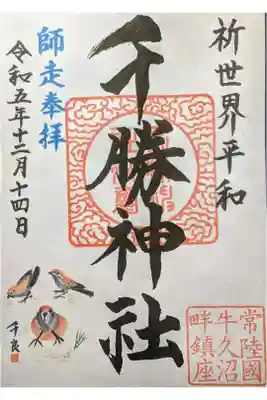 祈世界平和
千勝神社
師走奉拝
令和五年十二月十四日
常陸國
牛久沼
畔鎮座
千良